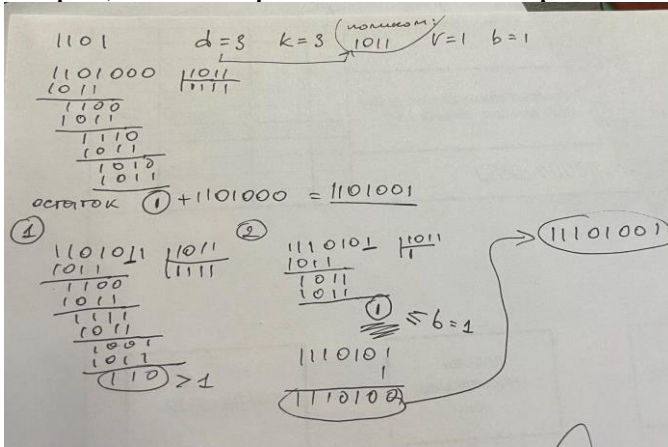 1101 d=3 k=3 (полином: 1011) r=1 b=1
1101000 | 1011
1011 1111
1100
1011
1110
1011
1010
1011
остаток ① + 1101000 = 1101001
① 1101011 | 1011
1011 1111
1100
1011
1111
1011
1001
1011
110 > 1
② 1110101 | 1011
1011 1
1011
1011
① ≤ b=1
1110101
1
1110100
11101001